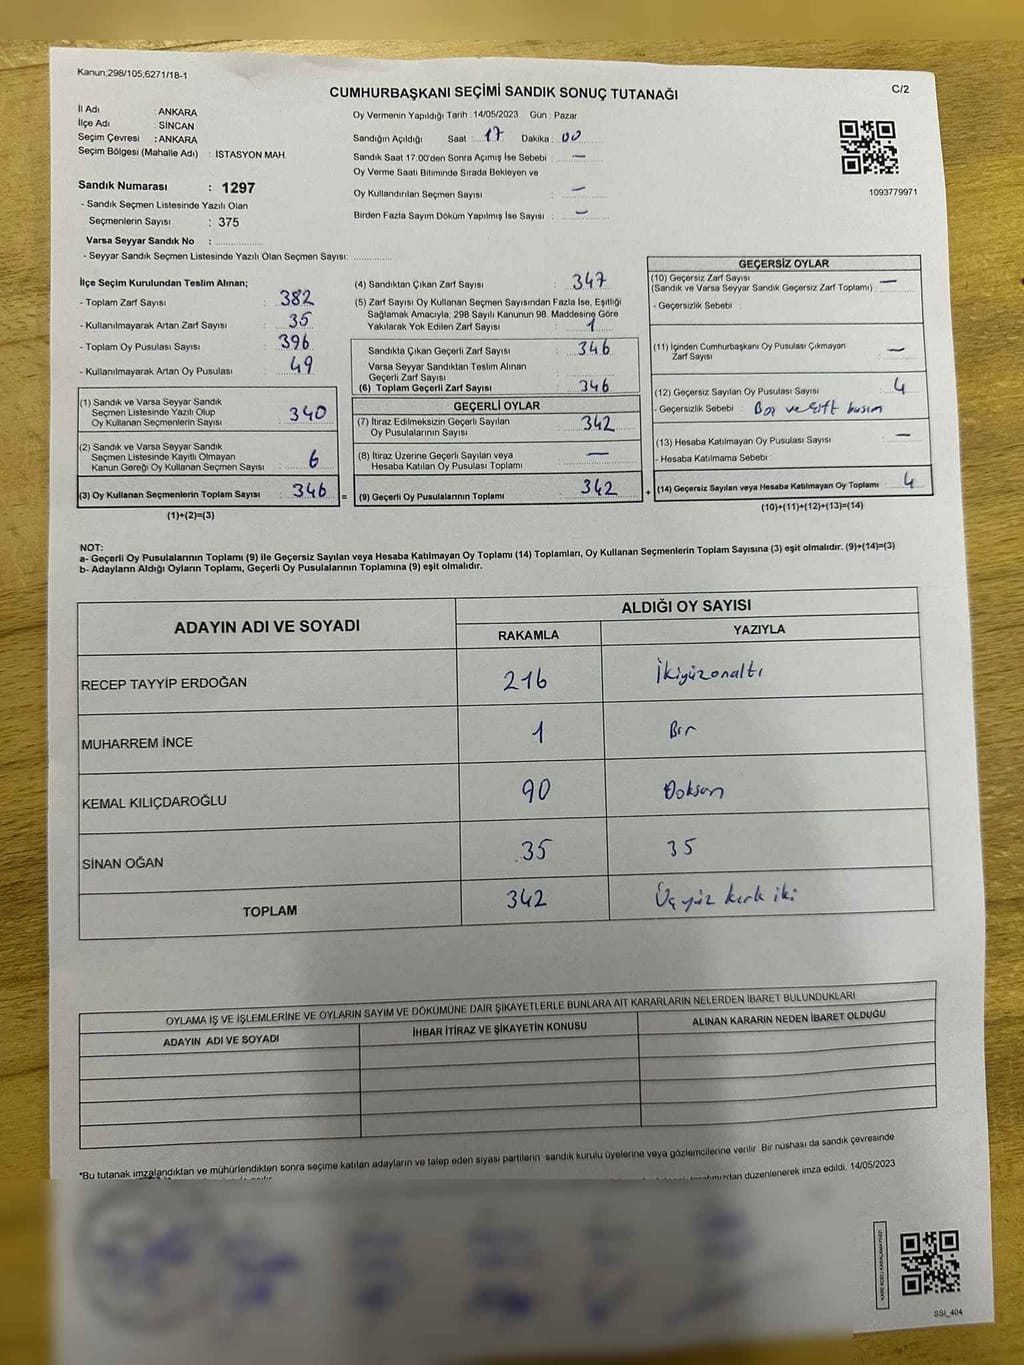 Kanun;298/105,6271/18-1
CUMHURBAŞKANI SEÇİMİ SANDIK SONUÇ TUTANAĞI
C/2
İl Adı : ANKARA
İlçe Adı : SİNCAN
Seçim Çevresi : ANKARA
Seçim Bölgesi (Mahalle Adı) : İSTASYON MAH.
Oy Vermenin Yapıldığı Tarih : 14/05/2023 Gün : Pazar
Sandığın Açıldığı Saat : 17 Dakika : 00
Sandık Saat 17.00'den Sonra Açımış İse Sebebi : —
Oy Verme Saati Bitiminde Sırada Bekleyen ve
Oy Kullandırılan Seçmen Sayısı : —
Birden Fazla Sayım Döküm Yapılmış İse Sayısı : —
1093779971
Sandık Numarası : 1297
- Sandık Seçmen Listesinde Yazılı Olan
Seçmenlerin Sayısı : 375
Varsa Seyyar Sandık No :
- Seyyar Sandık Seçmen Listesinde Yazılı Olan Seçmen Sayısı:
İlçe Seçim Kurulundan Teslim Alınan;
- Toplam Zarf Sayısı : 382
- Kullanılmayarak Artan Zarf Sayısı : 35
- Toplam Oy Pusulası Sayısı : 396
- Kullanılmayarak Artan Oy Pusulası : 49
(1) Sandık ve Varsa Seyyar Sandık
Seçmen Listesinde Yazılı Olup
Oy Kullanan Seçmenlerin Sayısı : 340
(2) Sandık ve Varsa Seyyar Sandık
Seçmen Listesinde Kayıtlı Olmayan
Kanun Gereği Oy Kullanan Seçmen Sayısı : 6
(3) Oy Kullanan Seçmenlerin Toplam Sayısı : 346 =
(1)+(2)=(3)
(4) Sandıktan Çıkan Zarf Sayısı : 347
(5) Zarf Sayısı Oy Kullanan Seçmen Sayısından Fazla İse, Eşitliği
Sağlamak Amacıyla; 298 Sayılı Kanunun 98. Maddesine Göre
Yakılarak Yok Edilen Zarf Sayısı : 1
Sandıkta Çıkan Geçerli Zarf Sayısı : 346
Varsa Seyyar Sandıktan Teslim Alınan
Geçerli Zarf Sayısı
(6) Toplam Geçerli Zarf Sayısı : 346
GEÇERLİ OYLAR
(7) İtiraz Edilmeksizin Geçerli Sayılan
Oy Pusulalarının Sayısı : 342
(8) İtiraz Üzerine Geçerli Sayılan veya
Hesaba Katılan Oy Pusulası Toplamı : —
(9) Geçerli Oy Pusulalarının Toplamı : 342 +
GEÇERSİZ OYLAR
(10) Geçersiz Zarf Sayısı
(Sandık ve Varsa Seyyar Sandık Geçersiz Zarf Toplamı) : —
- Geçersizlik Sebebi :
(11) İçinden Cumhurbaşkanı Oy Pusulası Çıkmayan
Zarf Sayısı : —
(12) Geçersiz Sayılan Oy Pusulası Sayısı : 4
- Geçersizlik Sebebi : Boş ve çift basım
(13) Hesaba Katılmayan Oy Pusulası Sayısı : —
- Hesaba Katılmama Sebebi :
(14) Geçersiz Sayılan veya Hesaba Katılmayan Oy Toplamı : 4
(10)+(11)+(12)+(13)=(14)
NOT:
a- Geçerli Oy Pusulalarının Toplamı (9) ile Geçersiz Sayılan veya Hesaba Katılmayan Oy Toplamı (14) Toplamları, Oy Kullanan Seçmenlerin Toplam Sayısına (3) eşit olmalıdır. (9)+(14)=(3)
b- Adayların Aldığı Oyların Toplamı, Geçerli Oy Pusulalarının Toplamına (9) eşit olmalıdır.
ADAYIN ADI VE SOYADI
ALDIĞI OY SAYISI
RAKAMLA YAZIYLA
RECEP TAYYİP ERDOĞAN 216 İkiyüzonaltı
MUHARREM İNCE 1 Bir
KEMAL KILIÇDAROĞLU 90 Doksan
SİNAN OĞAN 35 35
TOPLAM 342 Üçyüz kırk iki
OYLAMA İŞ VE İŞLEMLERİNE VE OYLARIN SAYIM VE DÖKÜMÜNE DAİR ŞİKAYETLERLE BUNLARA AİT KARARLARIN NELERDEN İBARET BULUNDUKLARI
ADAYIN ADI VE SOYADI İHBAR İTİRAZ VE ŞİKAYETİN KONUSU ALINAN KARARIN NEDEN İBARET OLDUĞU
*Bu tutanak imzalandıktan ve mühürlendikten sonra seçime katılan adayların ve talep eden siyasi partilerin sandık kurulu üyelerine veya gözlemcilerine verilir. Bir nüshası da sandık çevresinde
düzenlenerek imza edildi. 14/05/2023
KARE KODU KARALAMAYINIZ!
SSI_404